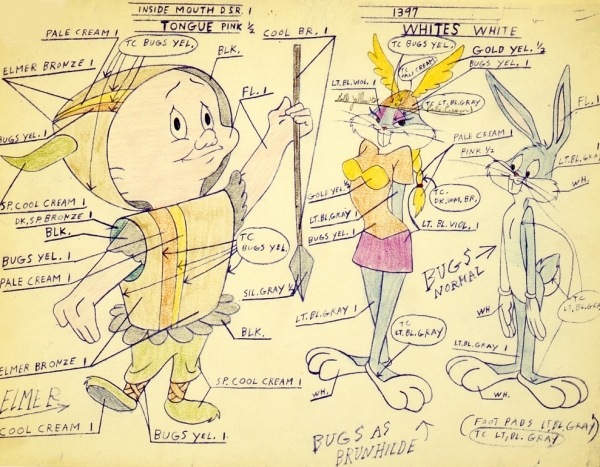 INSIDE MOUTH D.SR. 1
TONGUE PINK ½
PALE CREAM 1
TC BUGS YEL.
COOL BR. 1
BLK.
ELMER BRONZE 1
FL. 1
BUGS YEL. 1
SP. COOL CREAM 1
DK. SP BRONZE 1
BLK.
BUGS YEL. 1
PALE CREAM 1
TC BUGS YEL.
SIL. GRAY ½
BLK.
ELMER BRONZE 1
SP. COOL CREAM 1
ELMER
COOL CREAM 1
BUGS YEL. 1
1397
WHITES WHITE
TC BUGS YEL.
PALE CREAM
GOLD YEL. ½
BUGS YEL. 1
LT. BL. VIOL. 1
TC LT. BL. GRAY
PALE CREAM 1
PINK ½
GOLD YEL. ½
TC
DK. WM. BR.
LT. BL. GRAY 1
BUGS YEL. 1
LT. BL. VIOL. 1
LT. BL. GRAY 1
TC
LT. BL. GRAY
WH.
BUGS AS
BRUNHILDE
FL. 1
LT. BL. GRAY 1
WH.
BUGS
NORMAL
TC
LT. BL. GRAY
WH.
LT. BL. GRAY 1
WH.
(FOOT PADS LT. BL. GRAY)
TC LT. BL. GRAY